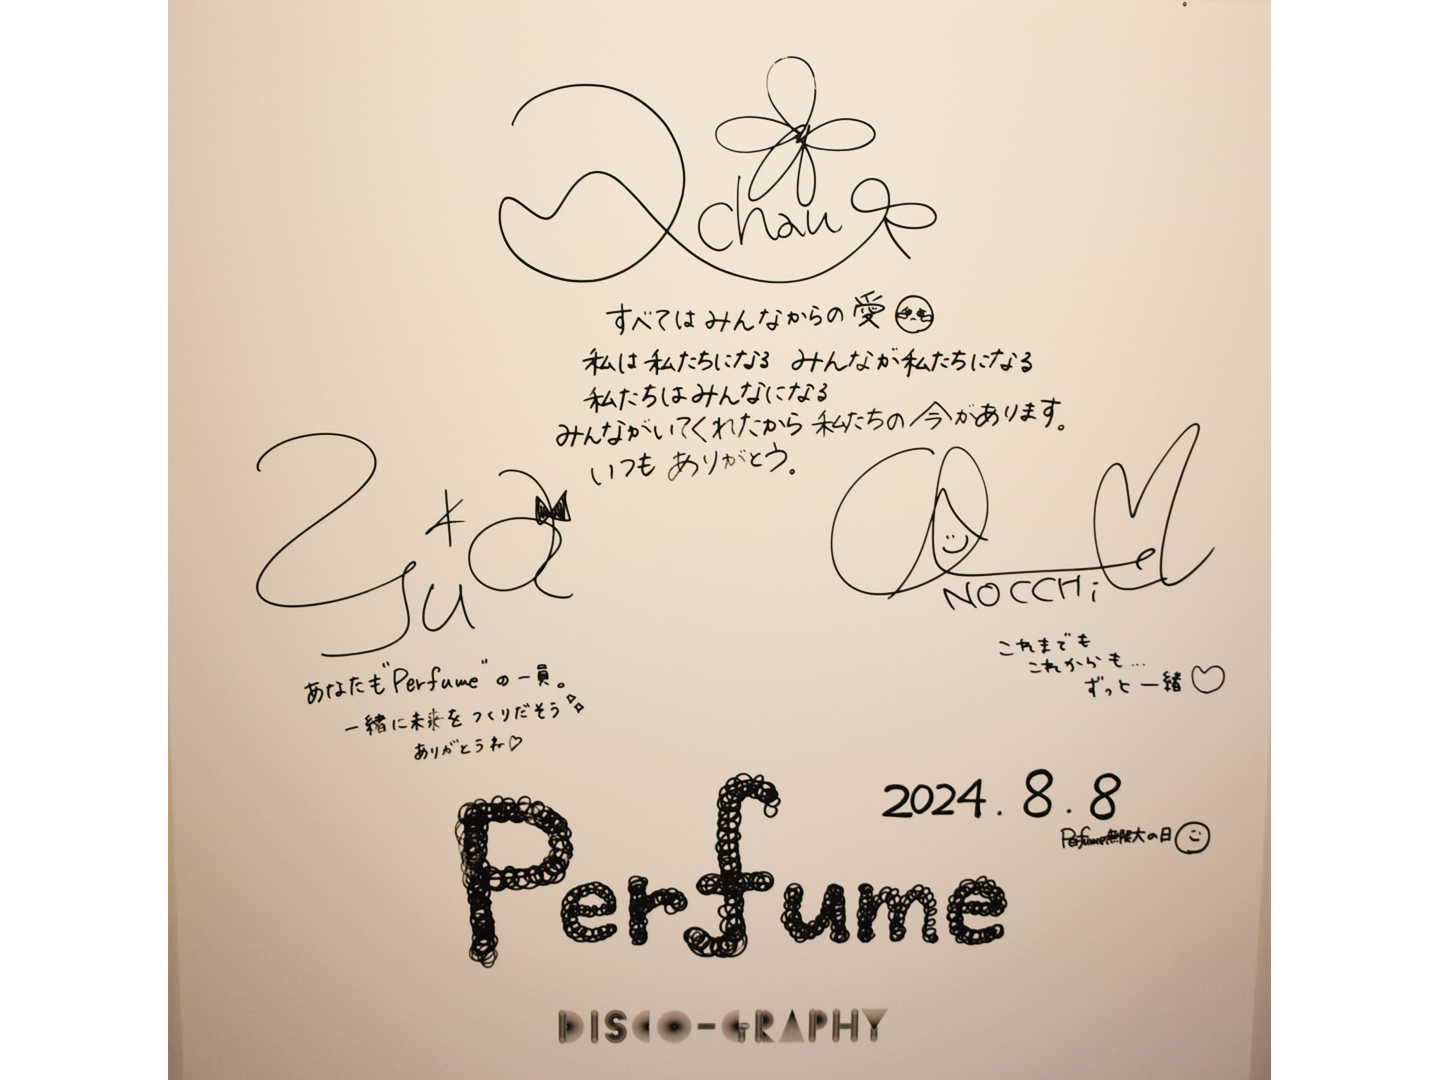 chan
すべてはみんなからの愛
私は私たちになる みんなが私たちになる
私たちはみんなになる
みんながいてくれたから 私たちの今があります。
いつも ありがとう。
Yuka
NOCCHi
これまでも
これからも…
ずっと一緒♡
あなたも"Perfume"の一員。
一緒に未来をつくりだそう
ありがとうね♡
2024.8.8
Perfume無限大の日
Perfume
DISCO-GRAPHY